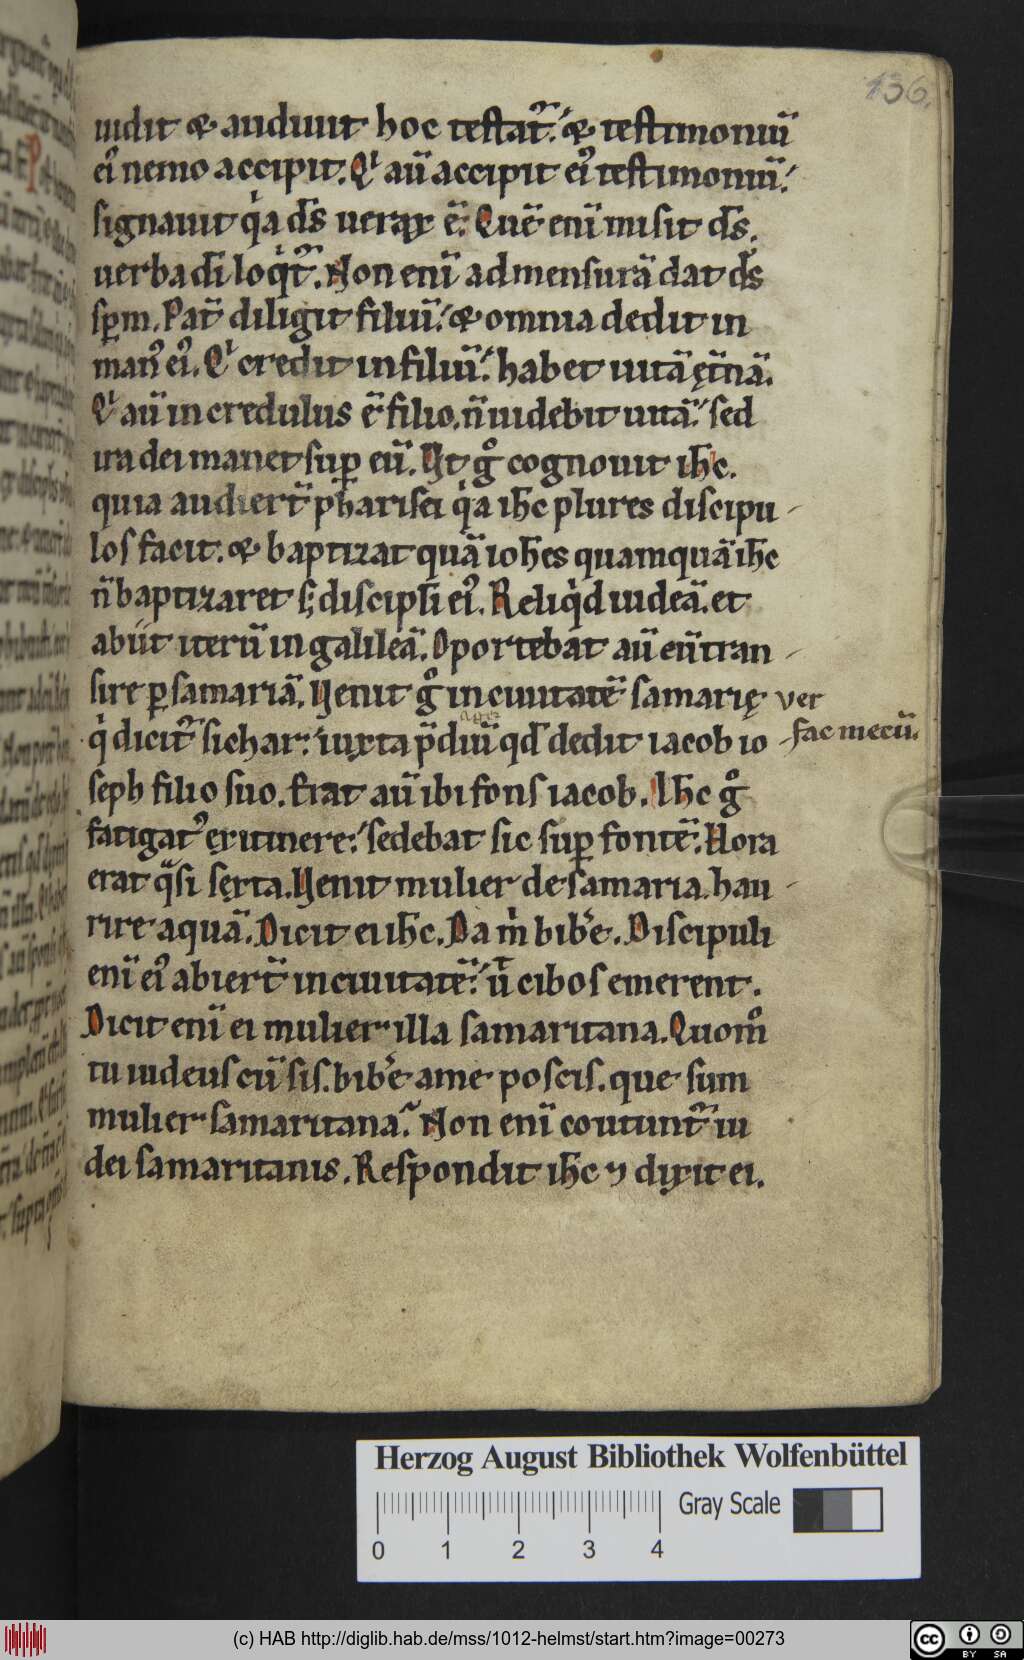 136.
uidit & audiuit hoc testat᷑. & testimoniū
ei᷒ nemo accipit. Qͥ aū accipit ei᷒ testimoniū.
signauit qͥa ds̄ uerax ē. Quē enī misit ds̄.
uerba dī loqͥt᷑. Non enī ad mensurā dat ds̄
sp̄m. Pat̄ diligit filiū. & omnia dedit in
man᷒ ei᷒. Qͥ credit in filiū. habet uitā ęt̄nā.
Qͥ aū incredulus ē filio. n̄ uidebit uitā. sed
ira dei manet sup̄ eū. Vt gͦ cognouit ih̄c.
quia audiert̄ pharisei qͥa ih̄c plures discipu-
los facit. & baptizat quā ioh̄es quamquā ih̄c
n̄ baptizaret s; discipl̄i ei᷒. Reliqͥd iudeā. et
abiit iterū in galileā. Oportebat aū eū tran-
sire ꝑ samariā. Venit gͦ in ciuitatē samarię
qͥ dicit᷑ sichar. iuxta p̄diū qd̄ dedit iacob io
ver
-fac mecū.
seph filio suo. Erat aū ibi fons iacob. Ih̄c gͦ
fatigat᷒ ex itinere. sedebat sic sup̄ fontē. Hora
erat qͣsi sexta. Venit mulier de samaria. hau-
rire aquā. Dicit ei ih̄c. Da mͥ bib̄e. Discipuli
enī ei᷒ abiert̄ in ciuitatē. ut cibos emerent.
Dicit enī ei mulier illa samaritana. Quomͦ
tu iudeus cū sis. bib̄e a me poscis. que sum
mulier samaritana. Non enī coutunt᷑ iu
dei samaritanis. Respondit ih̄c ⁊ dixit ei.
Herzog August Bibliothek Wolfenbüttel
Gray Scale
0 1 2 3 4
(c) HAB http://diglib.hab.de/mss/1012-helmst/start.htm?image=00273
cc BY SA